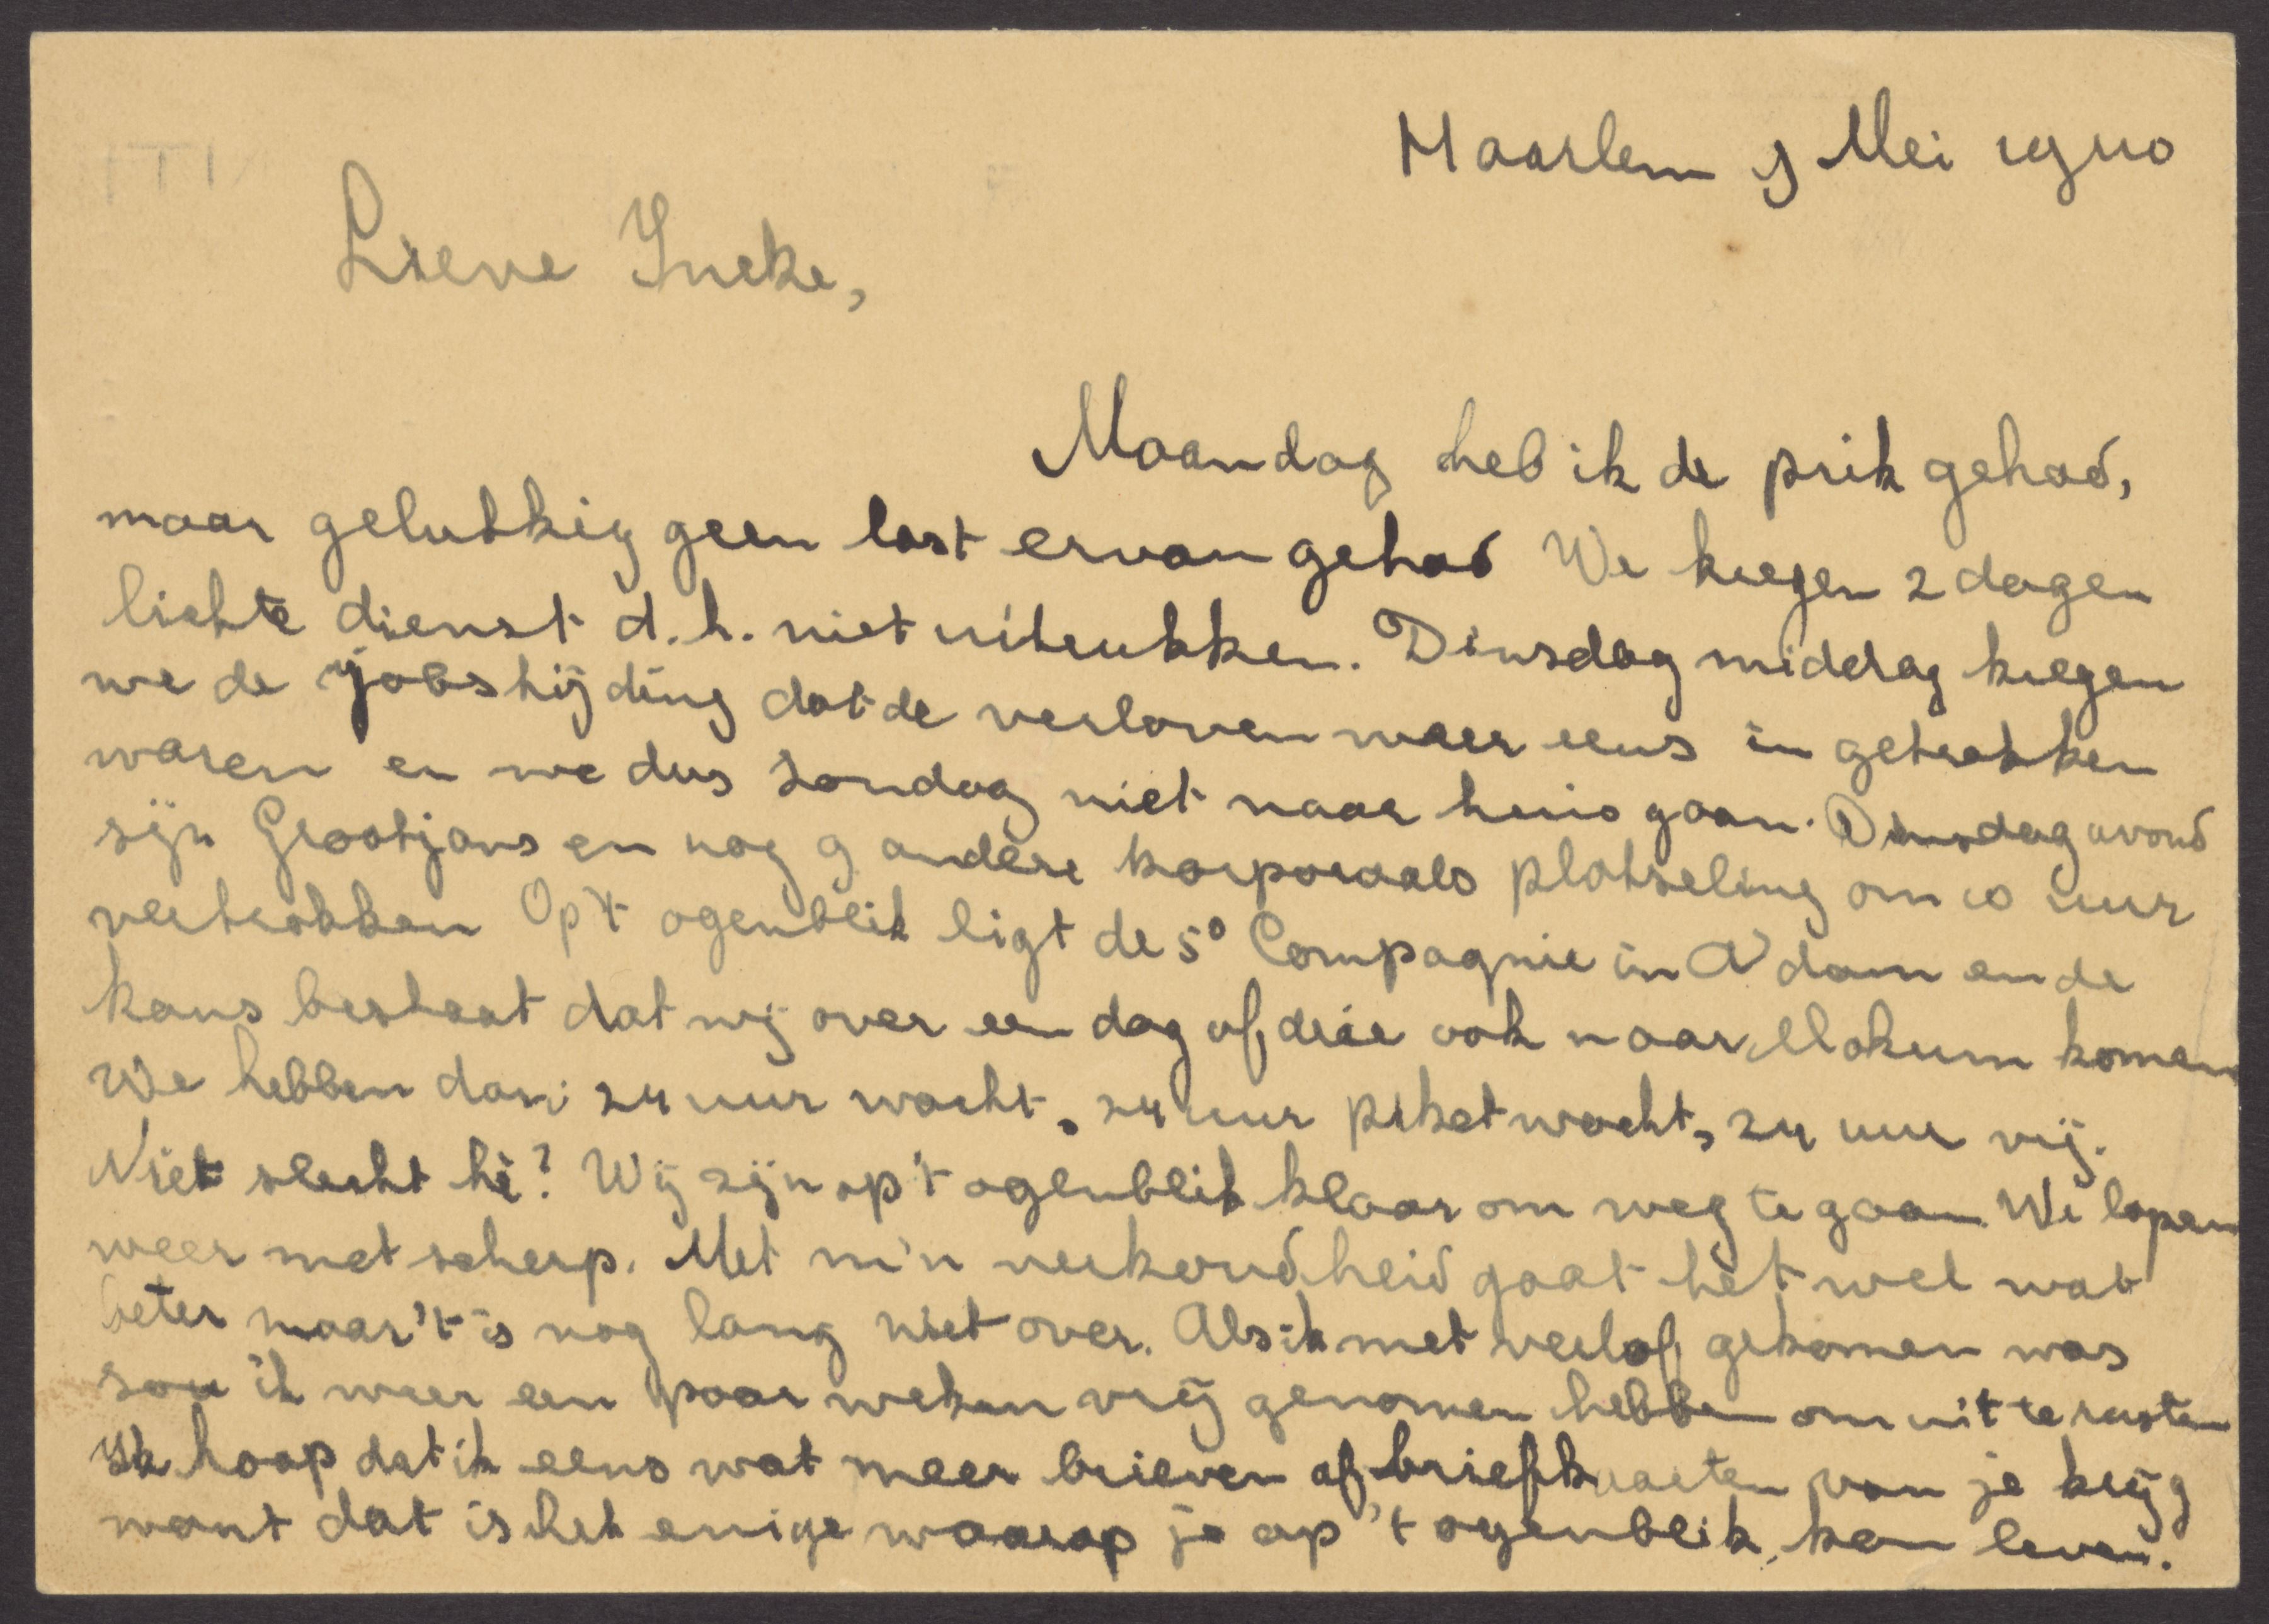 Haarlem 9 Mei 1940
Lieve Ineke,
Maandag heb ik de prik gehad,
maar gelukkig geen last ervan gehad We kregen 2 dagen
lichte dienst d.h. niet uitrukken. Dinsdag middag kregen
we de jobstijding dat de verloven weer eens in getrokken
waren en we dus Zondag niet naar huis gaan. Dinsdag avond
zijn Grootjans en nog 9 andere korporaals plotseling om 10 uur
vertrokken Op 't ogenblik ligt de 5e Compagnie in A'dam en de
kans bestaat dat wij over een dag of drie ook naar Mokum komen
We hebben dan: 24 uur wacht, 24 uur piketwacht, 24 uur vrij.
Niet slecht hè? Wij zijn op 't ogenblik klaar om weg te gaan. We lopen
weer met scherp. Met m'n verkoudheid gaat het wel wat
beter maar 't is nog lang niet over. Als ik met verlof gekomen was
zou ik weer een paar weken vrij genomen hebben om uit te rusten
Ik hoop dat ik eens wat meer brieven of briefkaarten van je krijg
want dat is het enige waarop je op 't ogenblik kan leven.